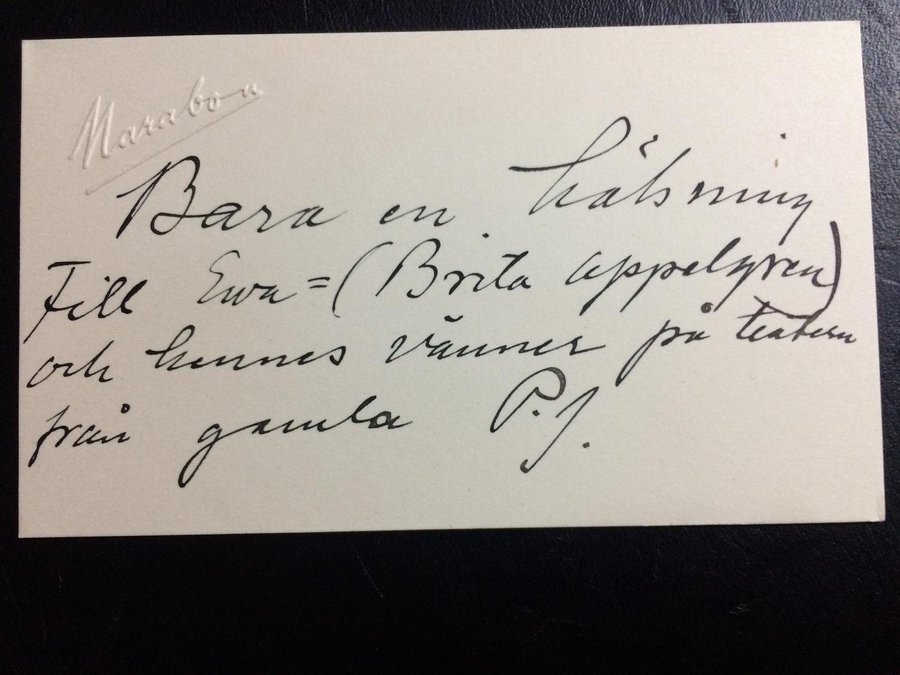 Marabou
Bara en hälsning
Till Ewa = (Brita Appelgren)
och hennes vänner på teatern
från gamla P.J.